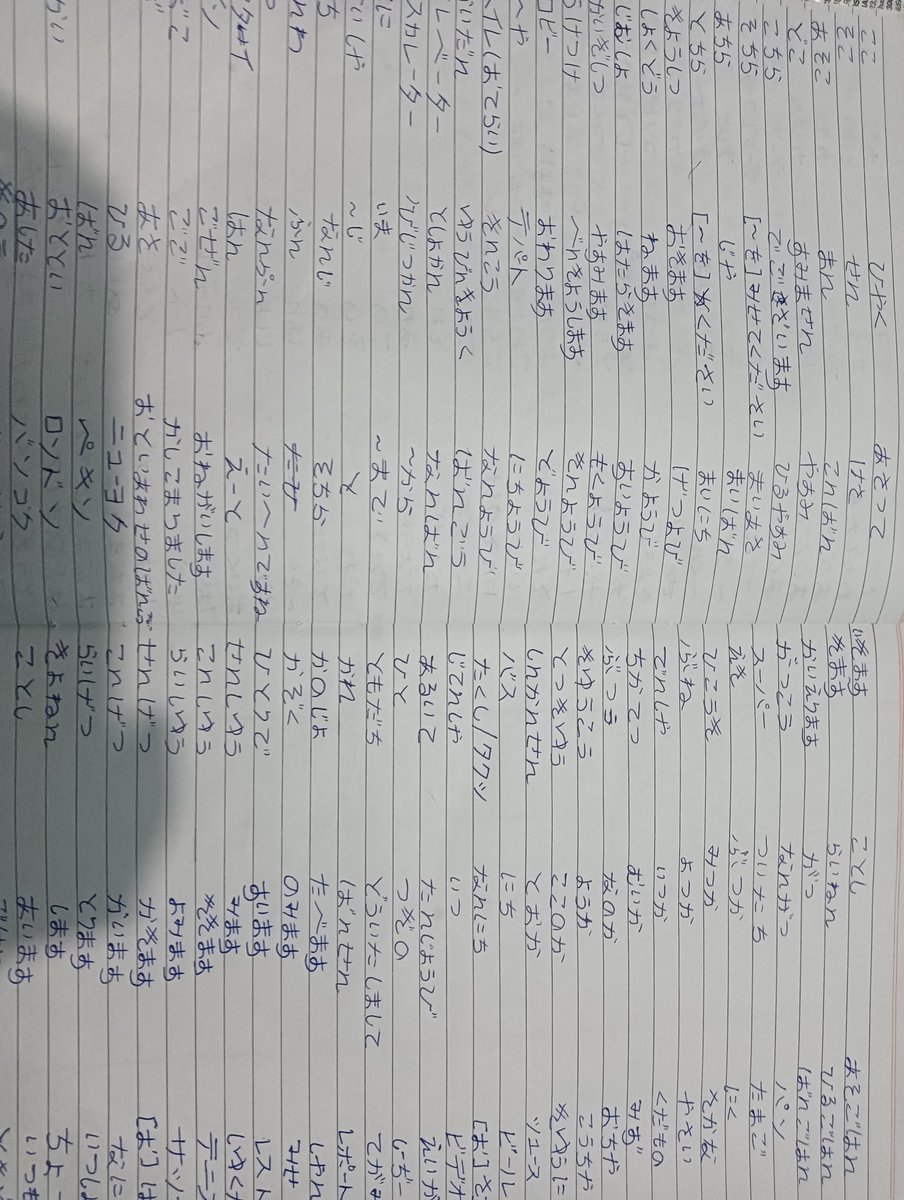 ここ
そこ
あそこ
どこ
こちら
そちら
あちら
どちら
きょうしつ
しょくどう
じむしょ
かいぎしつ
うけつけ
ロビー
へや
レベーター
スカレーター
ひゃく
せん
まん
すみません
でございます
[～を]みせてください
じゃ
[～を]ください
おきます
ねます
はたらきます
やすみます
べんきょうします
おわります
デパート
ぎんこう
ゆうびんきょく
としょかん
びじつかん
いま
～じ
なんじ
ふん
なんぷん
はん
ごぜん
ごご
あさ
ひる
ばん
おととい
あした
あさって
けさ
こんばん
やすみ
ひるやすみ
まいあさ
まいばん
まいにち
げつようび
かようび
すいようび
もくようび
きんようび
どようび
にちようび
なんようび
ばんごう
なんばん
～から
～まで
と
そちら
たいへんですね
えーと
おねがいします
かしこまりました
おといあわせのばんごう
ニューヨク
ペキン
ロンドン
バンコク
いきます
きます
かいえります
がっこう
スーパー
えき
ひこうき
ふね
でんしゃ
ちかてつ
ふつう
きゅうこう
とっきゅう
しんかんせん
バス
たくし/タクツ
じてんしゃ
あるいて
ひと
ともだち
かれ
かのじょ
かぞく
ひとりで
せんしゅう
こんしゅう
らいしゅう
せんげつ
こんげつ
らいげつ
きょねん
ことし
ことし
らいねん
がつ
なんがつ
ついたち
ふつか
みっか
よっか
いつか
むいか
なのか
ようか
ここのか
とおか
にち
なんにち
いつ
たんじょうび
つぎの
どういたしまして
ばんせん
たべます
のみます
すいます
みます
ききます
よみます
かきます
かいます
とります
します
あいます
あさごはん
ひるごはん
ばんごはん
パン
たまご
にく
さかな
やさい
くだもの
みず
おちゃ
こうちゃ
ぎゅうに
ジュース
ビール
ビデオ
えいが
てがみ
レポート
しゃしん
みせ